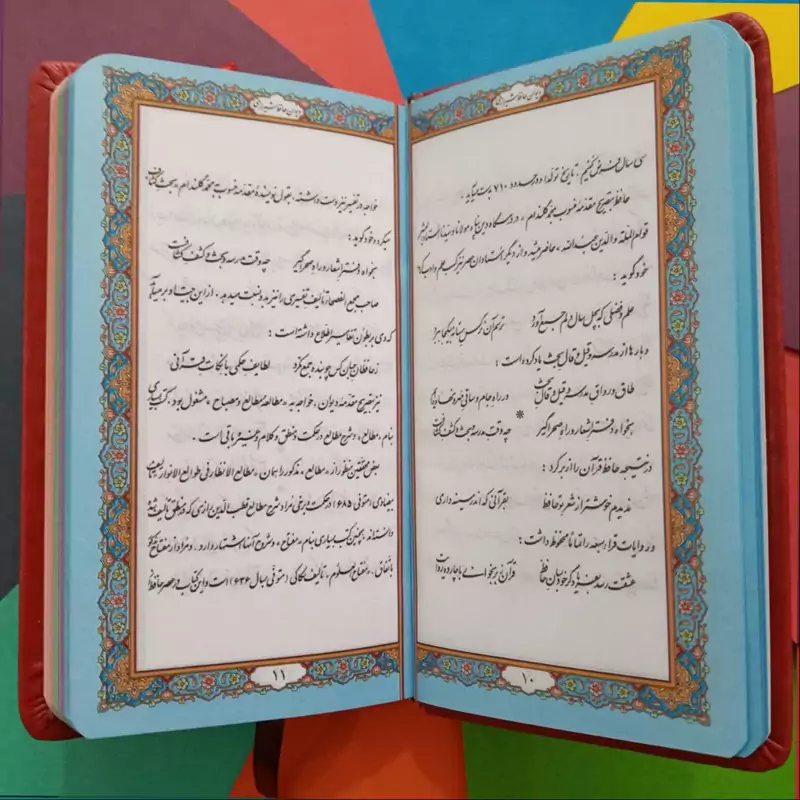 دیوان حافظ شیرازی
سی سال فرض کنیم، تاریخ تولد او در حدود ۷۱۰ بدست میآید.
حافظ بتصریح مقدمه منسوب بمحمد گلندام، در درسگاه دین پناه مولانا و سیدنا استاد البشر
قوام الملة والدین عبدالله، حاضر میشد و از دیگر استادان عصر نیز کسب علم و ادب میکرد
خود گوید :
علم و فضلی که بچهل سال دلم جمع آورد ترسم آن نرگس مستانه بیکجا ببرد
و بارها از مدرسه و قیل و قال بحث یاد کرده است :
طاق و رواق مدرسه و قیل و قال بحث در راه جام و ساقی مه رو نهاده ایم
بخواه دفتر اشعار و راه صحرا گیر چه وقت مدرسه و بحث و کشف کشافست
در نتیجه حافظ قرآن را از بر کرد :
ندیدم خوشتر از شعر تو حافظ بقرآنی که اندر سینه داری
و روایات قراء سبعه را تماما محفوظ داشت :
عشقت رسد بفریاد گر خود بسان حافظ قرآن ز بر بخوانی با چارده روایت
۱۰
دیوان حافظ شیرازی
خواجه در تفسیر نیز دست داشته، بقول نویسندهٔ مقدمه منسوب به محمد گلندام، ببحث کشاف
میکرد و خود گوید :
بخواه دفتر اشعار و راه صحرا گیر چه وقت مدرسه و بحث و کشف کشافست
صاحب مجمع الفصحا تألیف تفسیری را نیز بدو نسبت میدهد. از این جهات برمیآید
که وی بر بطون تفاسیر اطلاع داشته است :
ز حافظان جهان کس چو بنده جمع نکرد لطایف حکمی با نکات قرآنی
نیز بتصریح مقدمه دیوان، خواجه به «مطالعه مطالع و مصباح» مشغول بود. کتب بسیاری
بنام «مطالع» و شرح مطالع در حکمت و منطق و کلام و غیره باقی است .
بعض محققین منظور از «مطالع» مذکور را همان «مطالع الانظار فی طوالع الانوار»
بیضاوی (متوفی ۶۸۵) در حکمت و برخی مراد شرح مطالع قطب الدین رازی که در منطق تألیف شده
دانسته‌اند، همچنین کتب بسیاری بنام «مفتاح» و شروح آنها اشتهار دارد، و مراد از مفتاح
باتفاق، «مفتاح العلوم» تألیف سکاکی (متوفی بسال ۶۲۶) است و این کتاب در عصر حافظ
۱۱